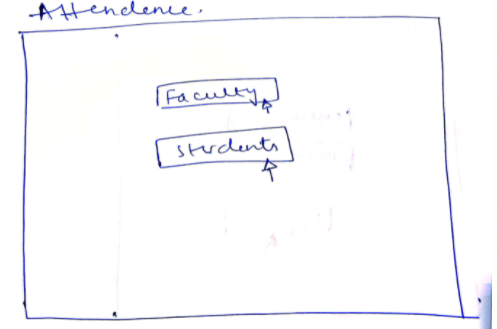 Attendence.
Faculty
Students